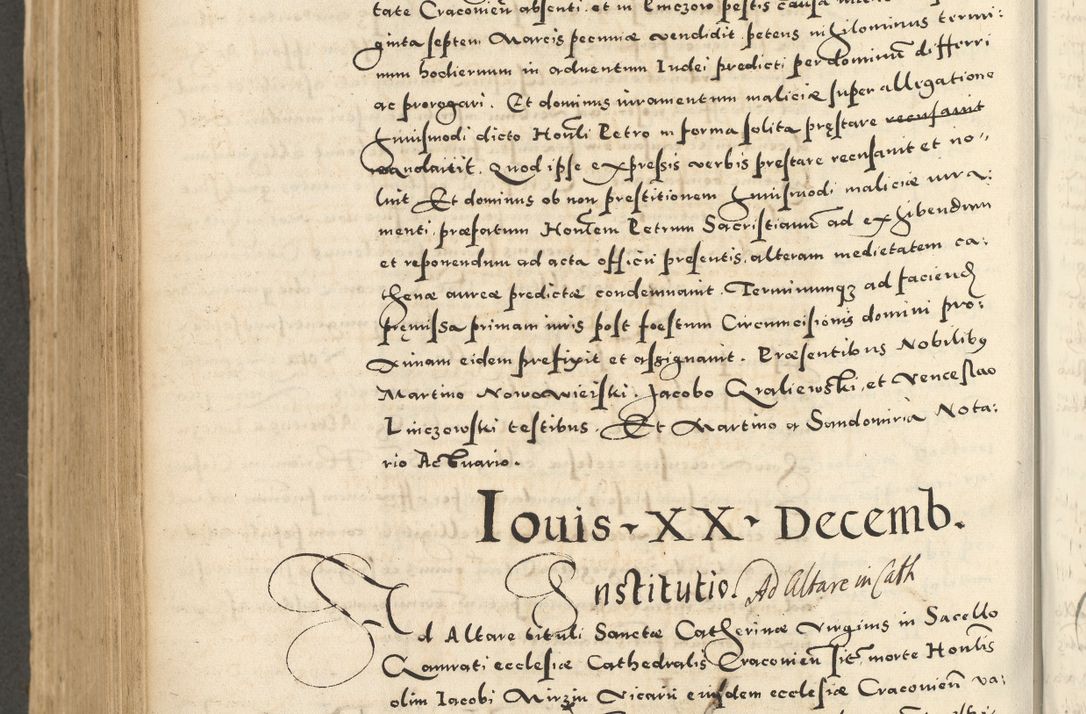 tate Craconien̄ absenti. et in Pinczow pestis causa
ginta septem Marcis pecuniæ vendidit. petens in hilominus termi:
num hodiernum in aduentum Iudei predicti per dominū differri
ac prorogari. Et dominus iuramentum maliciæ super allegatione
huiusmodi dicto Hon̄li Petro in forma solita pręstare recusauit
mandauit. Quod ipse expressis verbis prestare recusauit et no„
luit Et dominus ob non prestitionem huiusmodi maliciæ iura:
menti. præfatum Honl̄em Petrum Sacristianū ad exhibendum
et reponendum ad acta officii presentis, alteram medietatem ca:
thenæ aureæ predictæ condemnauit. Terminumqꝫ ad faciend
pręmissa primam iuris post foestum Circumcisionis domini pro:
ximam eidem prefixit et assignauit. Præsentibus Nobilibꝰ
Martino Nowowieiski. Jacobo Graliewski, et Venceslao
Pinczowski testibus. Et Martino a Sandomiria Nota:
rio Actuario.
Iouis XX Decemb.
Institutio. Ad Altare in Cath
Ad Altare tituli Sanctæ Catherinæ Virginis in Sacello
Qaurati ecclesiæ Cathedralis Craconien̄ sit̄. morte Honl̄is
olim Iacobi Mirzin Vicarii eiusdem ecclesiæ Craconien̄ va: